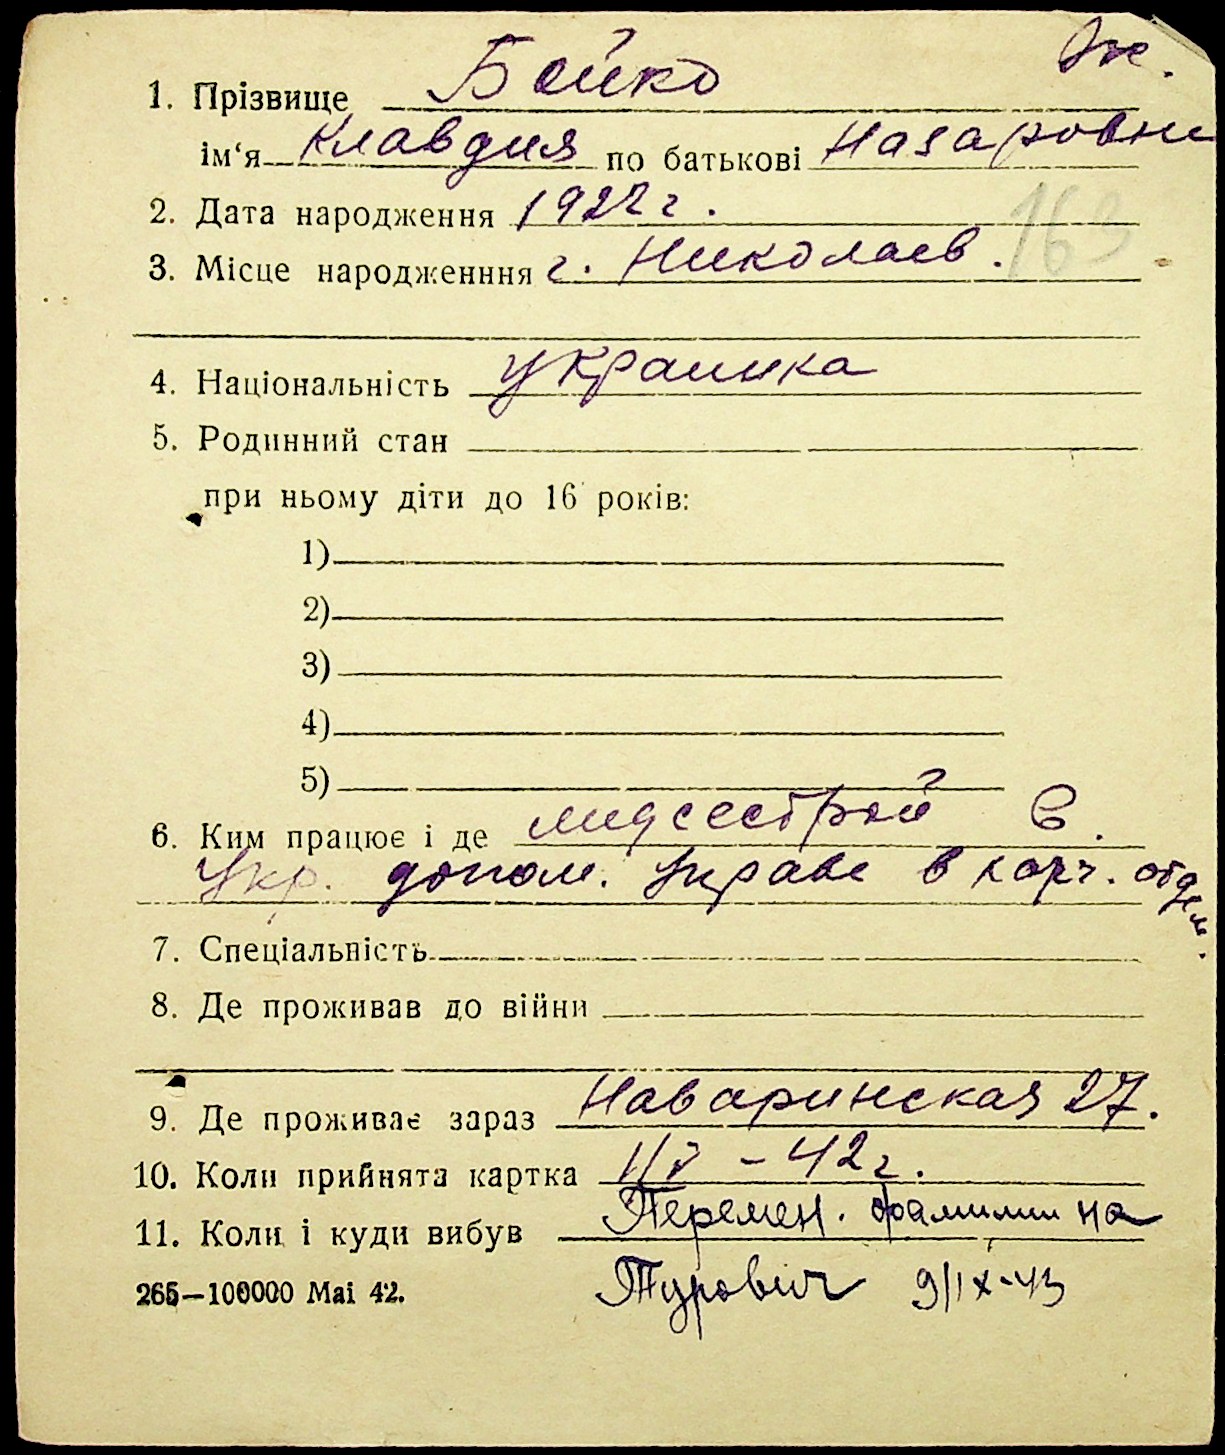 Ж.
1. Прізвище Бойко
ім‘я Клавдия по батькові Назаровна
2. Дата народження 1922 г.
3. Місце народженння г. Николаев. 163
4. Національність украинка
5. Родинний стан
при ньому діти до 16 років:
1)
2)
3)
4)
5)
6. Ким працює і де медсестрой в.
Укр. допом. управе в хозч. отдел.
7. Спеціальність
8. Де проживав до війни
9. Де проживає зараз Наваринская 27.
10. Коли прийнята картка 1/V - 42 г.
11. Коли і куди вибув Перемен. фамилии на
265—100000 Mai 42. Турович 9/IX-43